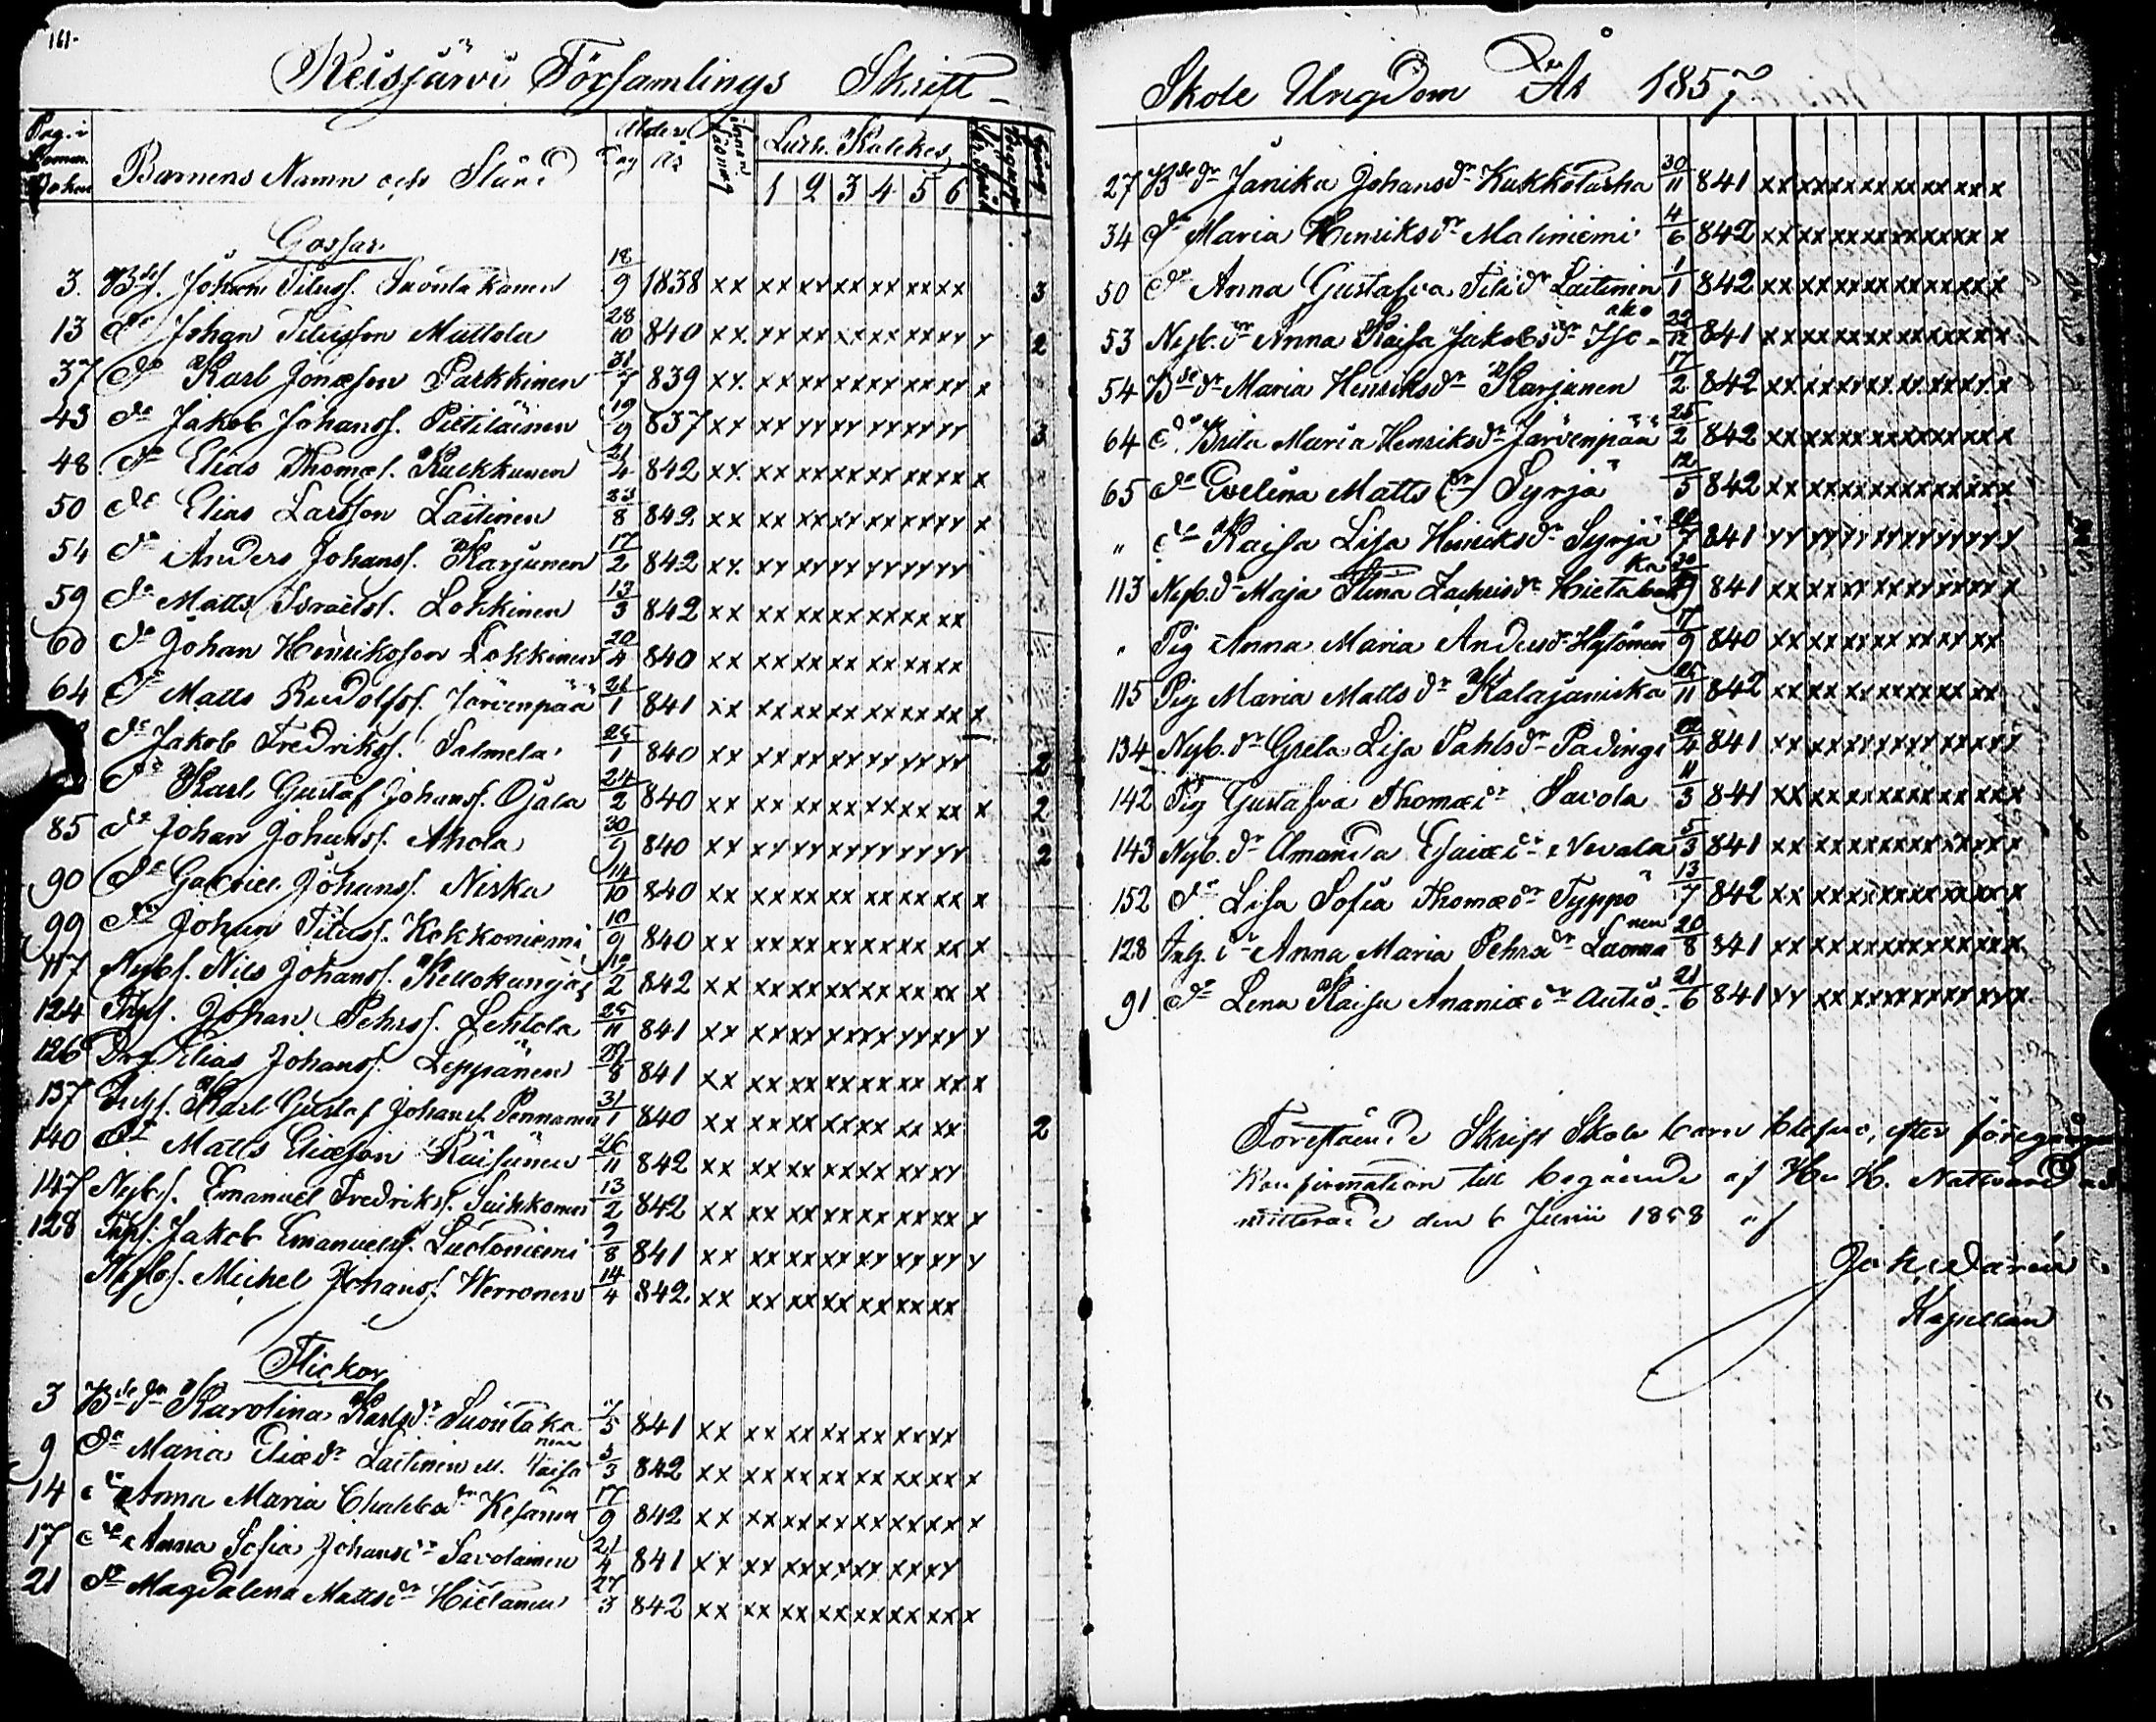 161.
Reisjärvi Församlings Skrift-
Pag. i Komm. Boken
Barnens Namn och Stånd
Ålder
Dag År
Luth. Katekes
1 2 3 4 5 6
Gossar
3. Bdes. Johan Tituss. Savulakanen 18/9 1838 xx xx xx xx xx xx xx 3
13 do Johan Titusson Mattola 28/10 840 xx xx xx xx xx xx xx x 2
37 do Karl Jonæson Parkkinen 31/7 839 xx xx xx xx xx xx xx x
43 do Jakob Johanss. Pietiläinen 19/9 837 xx xx xx xx xx xx xx 3
48 do Elias Thomæs. Kukkunen 21/4 842 xx xx xx xx xx xx xx x
50 do Elias Larsson Laitinen 23/8 842 xx xx xx xx xx xx xx x
54 do Anders Johanss. Karjunen 17/2 842 xx xx xx xx xx xx xx
59 do Matts Israelss. Lokkinen 13/3 842 xx xx xx xx xx xx xx
60 do Johan Henriksson Lokkinen 20/4 840 xx xx xx xx xx xx xx
64 do Matts Rudolfss. Järvenpää 21/1 841 xx xx xx xx xx xx xx x
do Jakob Fredrikss. Salmela 25/1 840 xx xx xx xx xx xx xx 2
do Karl Gustaf Johanss. Ojala 24/2 840 xx xx xx xx xx xx xx x 2
85 do Johan Johanss. Ahola 30/9 840 xx xx xx xx xx xx xx 2
90 do Gabriel Johanss. Niska 14/10 840 xx xx xx xx xx xx xx x
99 do Johan Tituss. Kokkoniemi 10/9 840 xx xx xx xx xx xx xx x
117 Nybs. Nils Johanss. Kellokangas 12/2 842 xx xx xx xx xx xx xx x
124 Johan Pehrss. Lehtola 25/11 841 xx xx xx xx xx xx xx x
126 Drg Elias Johanss. Leppänen 29/8 841 xx xx xx xx xx xx xx x
137 Inhs. Karl Gustaf Johanss. Pennanen 31/1 840 xx xx xx xx xx xx xx 2
140 do Matts Eliæson Räisänen 26/11 842 xx xx xx xx xx xx xx
147 Nybs. Emanuel Fredrikss. Saikkonen 13/2 842 xx xx xx xx xx xx xx x
128 Jakob Emanuelss. Luotoniemi 9/8 841 xx xx xx xx xx xx xx x
Nybs. Michel Johanss. Werronen 14/4 842 xx xx xx xx xx xx xx
Flickor
3 Bde dr Karolina Karlsdr Savulaka nen 7/5 841 xx xx xx xx xx xx xx
9 do Maria Eliædr Laitinen 5/3 842 xx xx xx xx xx xx xx x
14 do Anna Maria Kesänen 17/9 842 xx xx xx xx xx xx xx x
17 do Anna Sofia Johansdr Savolainen 21/4 841 xx xx xx xx xx xx xx
21 do Magdalena Mattsdr Hietanen 27/3 842 xx xx xx xx xx xx xx x
Skole Ungdom År 1857
27 Bde dr Janika Johansdr Kukkolasha 30/11 841 xx xx xx xx xx xx xx x
34 do Maria Henriksdr Maliniemi 4/6 842 xx xx xx xx xx xx xx x
50 do Anna Gustafva Titidr Laitinen 1/1 842 xx xx xx xx xx xx xx x
53 Nyb. dr Anna Kaisa Jakobsdr Iso- aho 22/12 841 xx xx xx xx xx xx xx x
54 Bde dr Maria Henriksdr Karjunen 17/2 842 xx xx xx xx xx xx xx x
64 do Brita Maria Henriksdr Järvenpää 25/2 842 xx xx xx xx xx xx xx x
65 do Evelina Matts dr Syrjä 12/5 842 xx xx xx xx xx xx xx x
" do Kaisa Lisa Henriksdr Syrjä 20/7 841 xx xx xx xx xx xx xx x
113 Nyb. dr Maja Stina Zachrisdr Hietakan 30/9 841 xx xx xx xx xx xx xx x
" Pig Anna Maria Andersdr Hytönen 17/9 840 xx xx xx xx xx xx xx
115 Pig Maria Matts dr Kalajaniska 25/11 842 xx xx xx xx xx xx xx
134 Nyb. dr Greta Lisa Pahlsdr Padings 22/4 841 xx xx xx xx xx xx xx x
142 Pig Gustafva Thomædr Savola 11/3 841 xx xx xx xx xx xx xx x
143 Nyb. dr Amanda Esaiædr Nevala 5/3 841 xx xx xx xx xx xx xx x
152 do Lisa Sofia Thomædr Typpö 13/7 842 xx xx xx xx xx xx xx x
128 Inh. dr Anna Maria Pehrsdr Laoma nen 20/8 841 xx xx xx xx xx xx xx x
91 do Lena Kaisa Ananiædr Autio 21/6 841 xx xx xx xx xx xx xx x
Förestående Skrift Skole barn blefvo, efter föregången
Konfirmation till begående af H. H. Nattvard ad-
mitterade den 6 Junii 1858 af
Kapellan